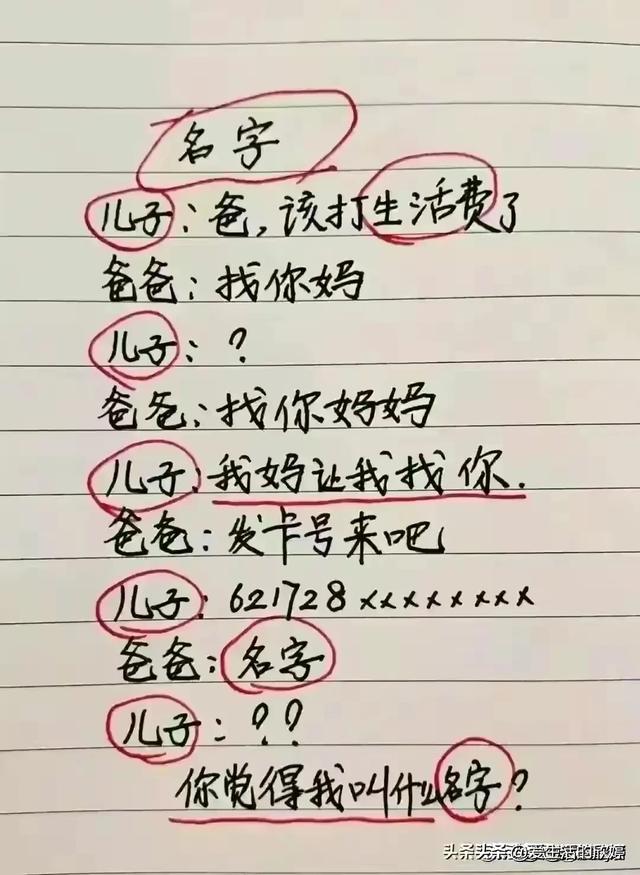 名字
儿子:爸,该打生活费了
爸爸:找你妈
儿子:?
爸爸:找你妈妈
儿子:我妈让我找你.
爸爸:发卡号来吧
儿子:621728xxxxxxxx
爸爸:名字
儿子:??
你觉得我叫什么名字?
头条 @爱生活的欣婷